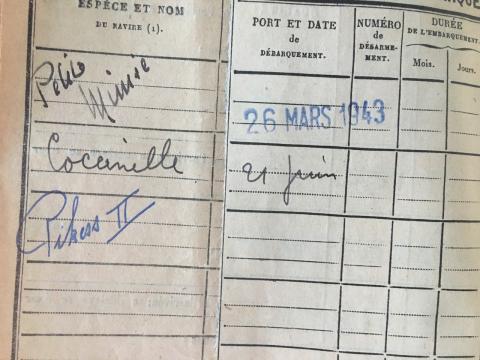 ESPÈCE ET NOM
DU NAVIRE (1).
PORT ET DATE
DE
DÉBARQUEMENT.
NUMÉRO
de
DÉSARME-
MENT.
DURÉE
DE L'EMBARQUEMENT.
Mois.
Jours.
Minnie
26 MARS 1943
Coccinelle
21 juin
II